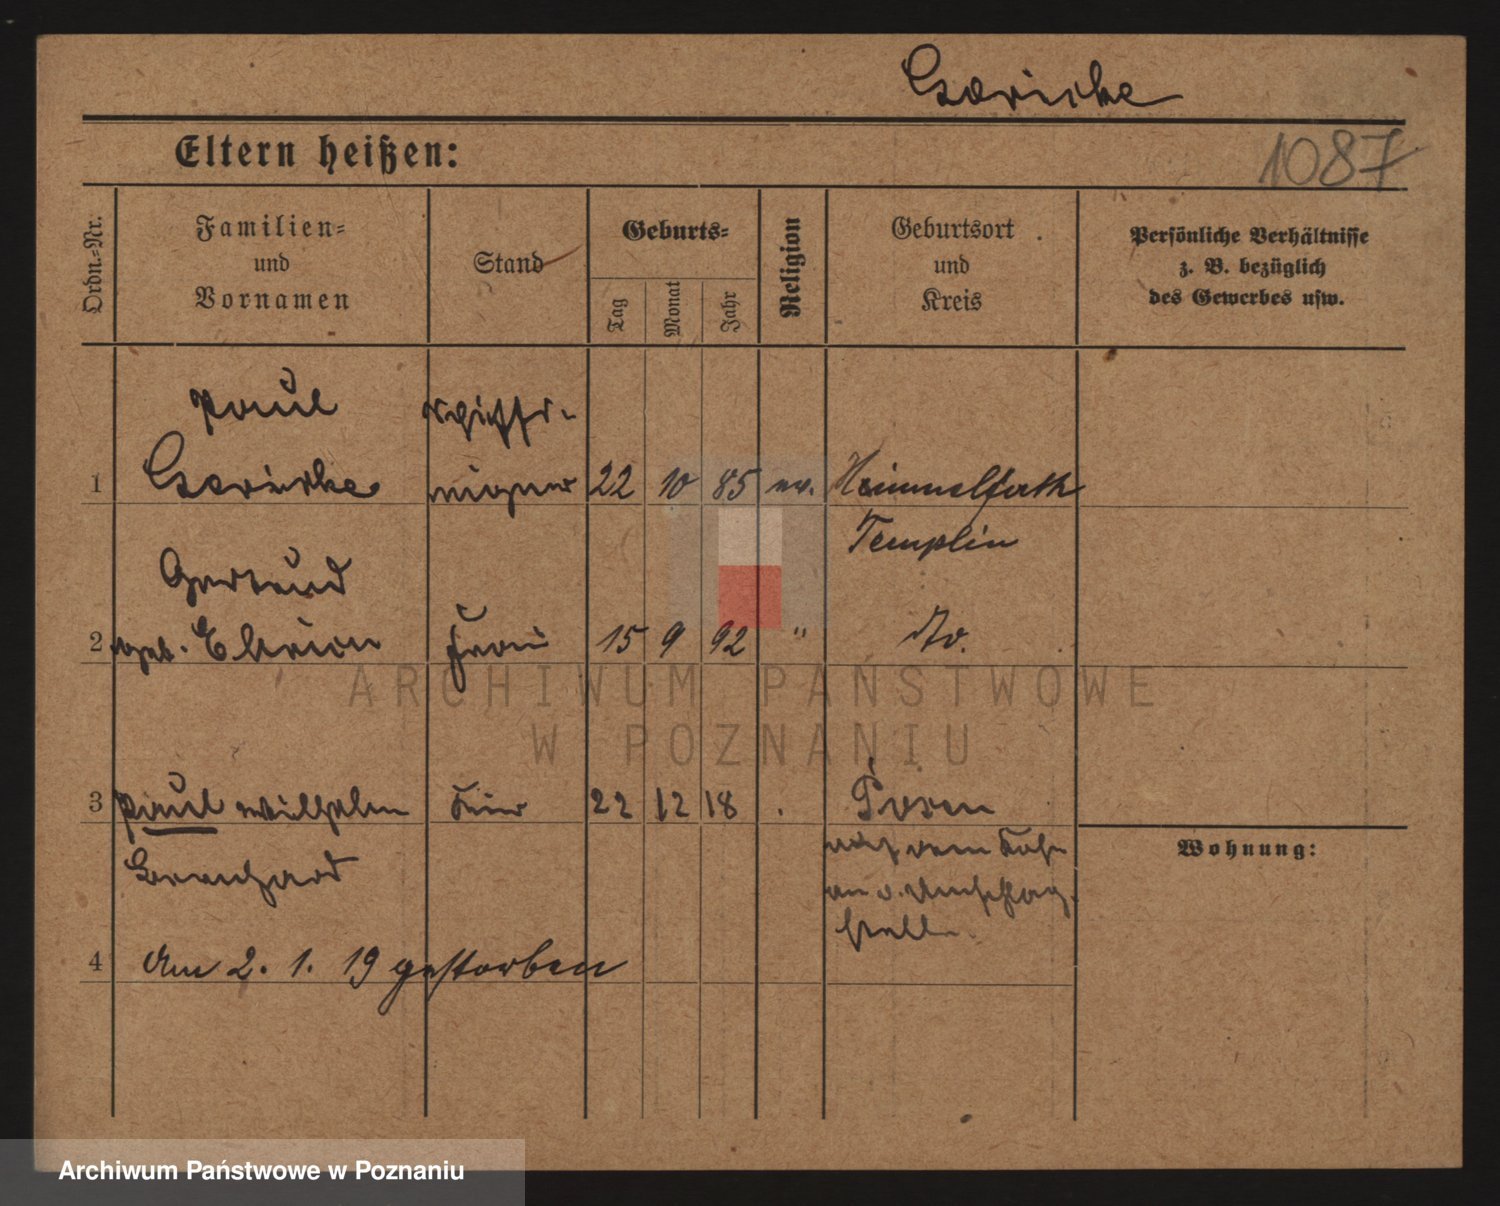 Gericke
1087
Eltern heißen:
Ordn.-Nr.
Familien-
und
Vornamen
Stand
Geburts-
Tag
Monat
Jahr
Religion
Geburtsort
und
Kreis
Persönliche Verhältnisse
z. B. bezüglich
des Gewerbes usw.
Paul Schiffs-
1 Gericke eigner 22 10 85 ev. Himmelpforth
Templin
Gertrud
2 geb. Frau 15 9 92 " do.
3 Paul Wilhelm Kind 22 12 18 . Posen
auf dem Kahn
an d. Umschlag-
stelle
Wohnung:
Bernhard
4 Am 2. 1. 19 gestorben
ARCHIWUM PAŃSTWOWE
W POZNANIU
Archiwum Państwowe w Poznaniu